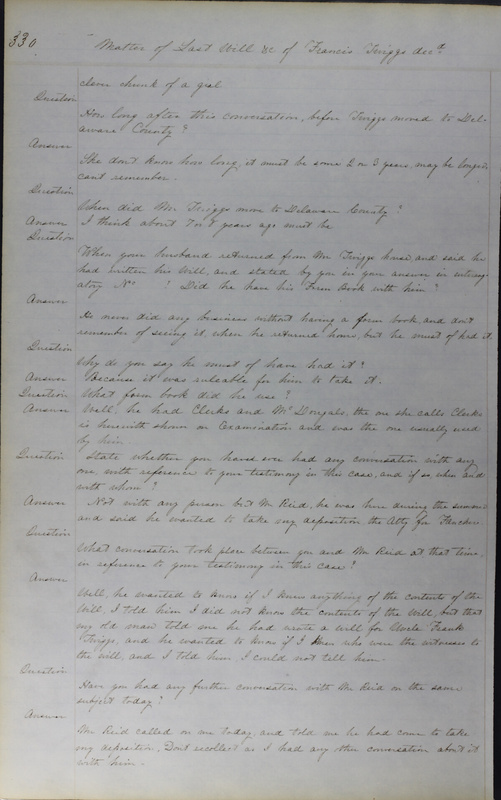 330 Matter of Last Will &c of Francis Triggs decd
clean chunk of a gal
Question
How long after this conversation, before Triggs moved to Del-
aware County?
Answer
She don't know how long, it must be some 2 or 3 years, may be longer
cant remember.
Question
When did Mr Triggs move to Delaware County?
Answer I think about 7 or 8 years ago must be
Question
When your husband returned from Mr Triggs house, and said he
had written his Will, and stated by you in your answer in interog-
atory No ! Did he have his Form Book with him?
Answer
He never did any business without having a form book, and don't
remember of seeing it, when he returned home, but he must of had it.
Question
Why do you say he must of have had it?
Answer Because it was suitable for him to take it.
Question What form book did he use?
Answer Well, he had Clerks and Mc Dougals, the one she calls Clerks
is herewith shown on Examination and was the one usually used
by him
Question State whether you have ever had any conversation with any
one, with reference to your testimony in this case, and if so when and
with whom?
Answer Not with any person but Mr Reid, he was here during the summer
and said he wanted to take my deposition the Atty for
Question
What conversation took place between you and Mr Reid at that time,
in reference to your testimony in this case?
Answer
Well, he wanted to know if I knew anything of the contents of the
Will, I told him I did not know the contents of the Will, but that
my old man told me he had wrote a will for Uncle Frank
Triggs, and he wanted to know if I knew who were the witnesses to
the will, and I told him I could not tell him.
Question
Have you had any further conversation with Mr Reid on the same
subject today?
Answer
Mr Reid called on me today, and told me he had come to take
my deposition, Dont recollect as I had any other conversation about it
with him.